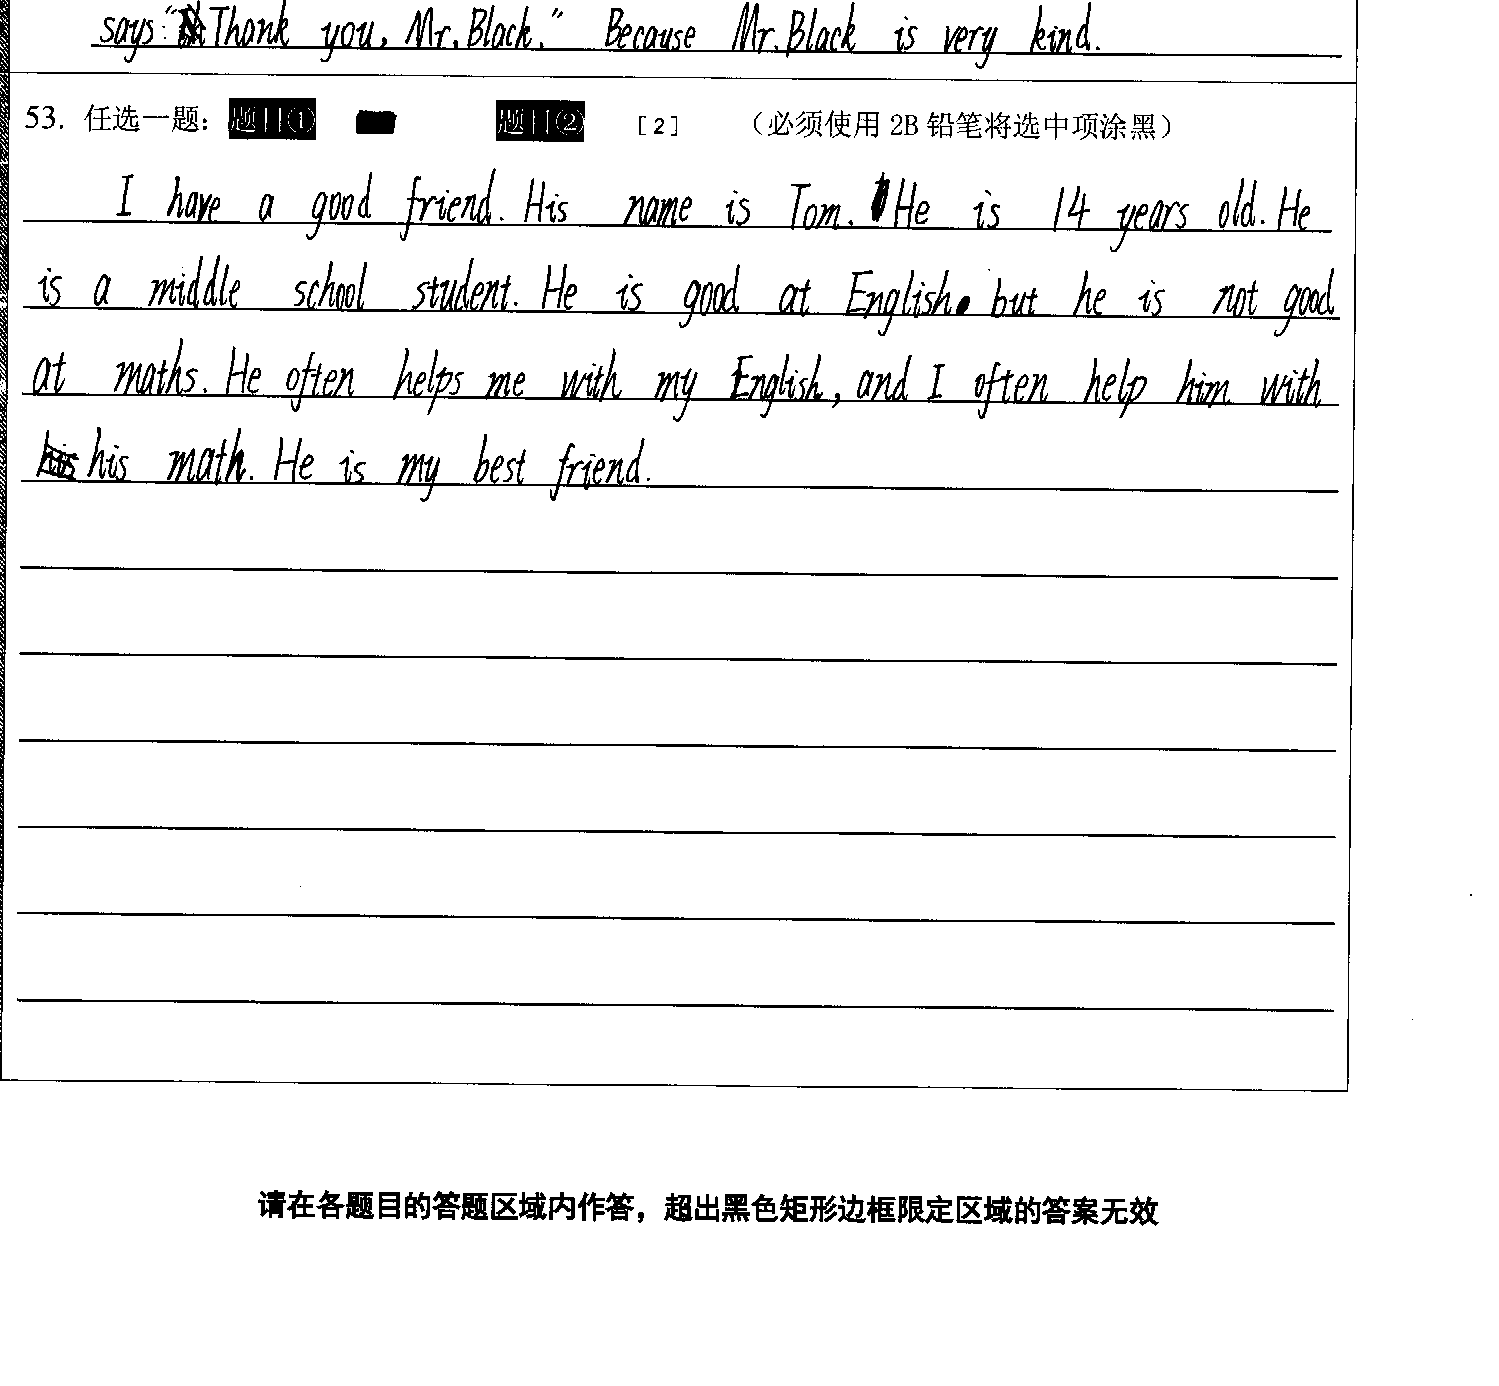 says:"Thank you, Mr. Black." Because Mr. Black is very kind.
53. 任选一题: 题目① 题目② [2] (必须使用 2B 铅笔将选中项涂黑)
I have a good friend. His name is Tom. He is 14 years old. He
is a middle school student. He is good at English. but he is not good
at maths. He often helps me with my English, and I often help him with
his his math. He is my best friend.
请在各题目的答题区域内作答，超出黑色矩形边框限定区域的答案无效